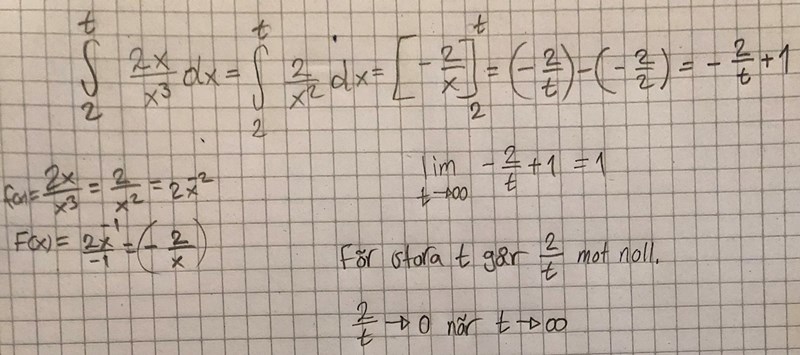 ∫₂ᵗ 2x/x³ dx = ∫₂ᵗ 2/x² dx = [-2/x]₂ᵗ = (-2/t) - (-2/2) = -2/t + 1
f(x) = 2x/x³ = 2/x² = 2x⁻²
F(x) = 2x⁻¹/-1 = (-2/x)
lim t→∞ -2/t + 1 = 1
För stora t går 2/t mot noll.
2/t → 0 när t → ∞